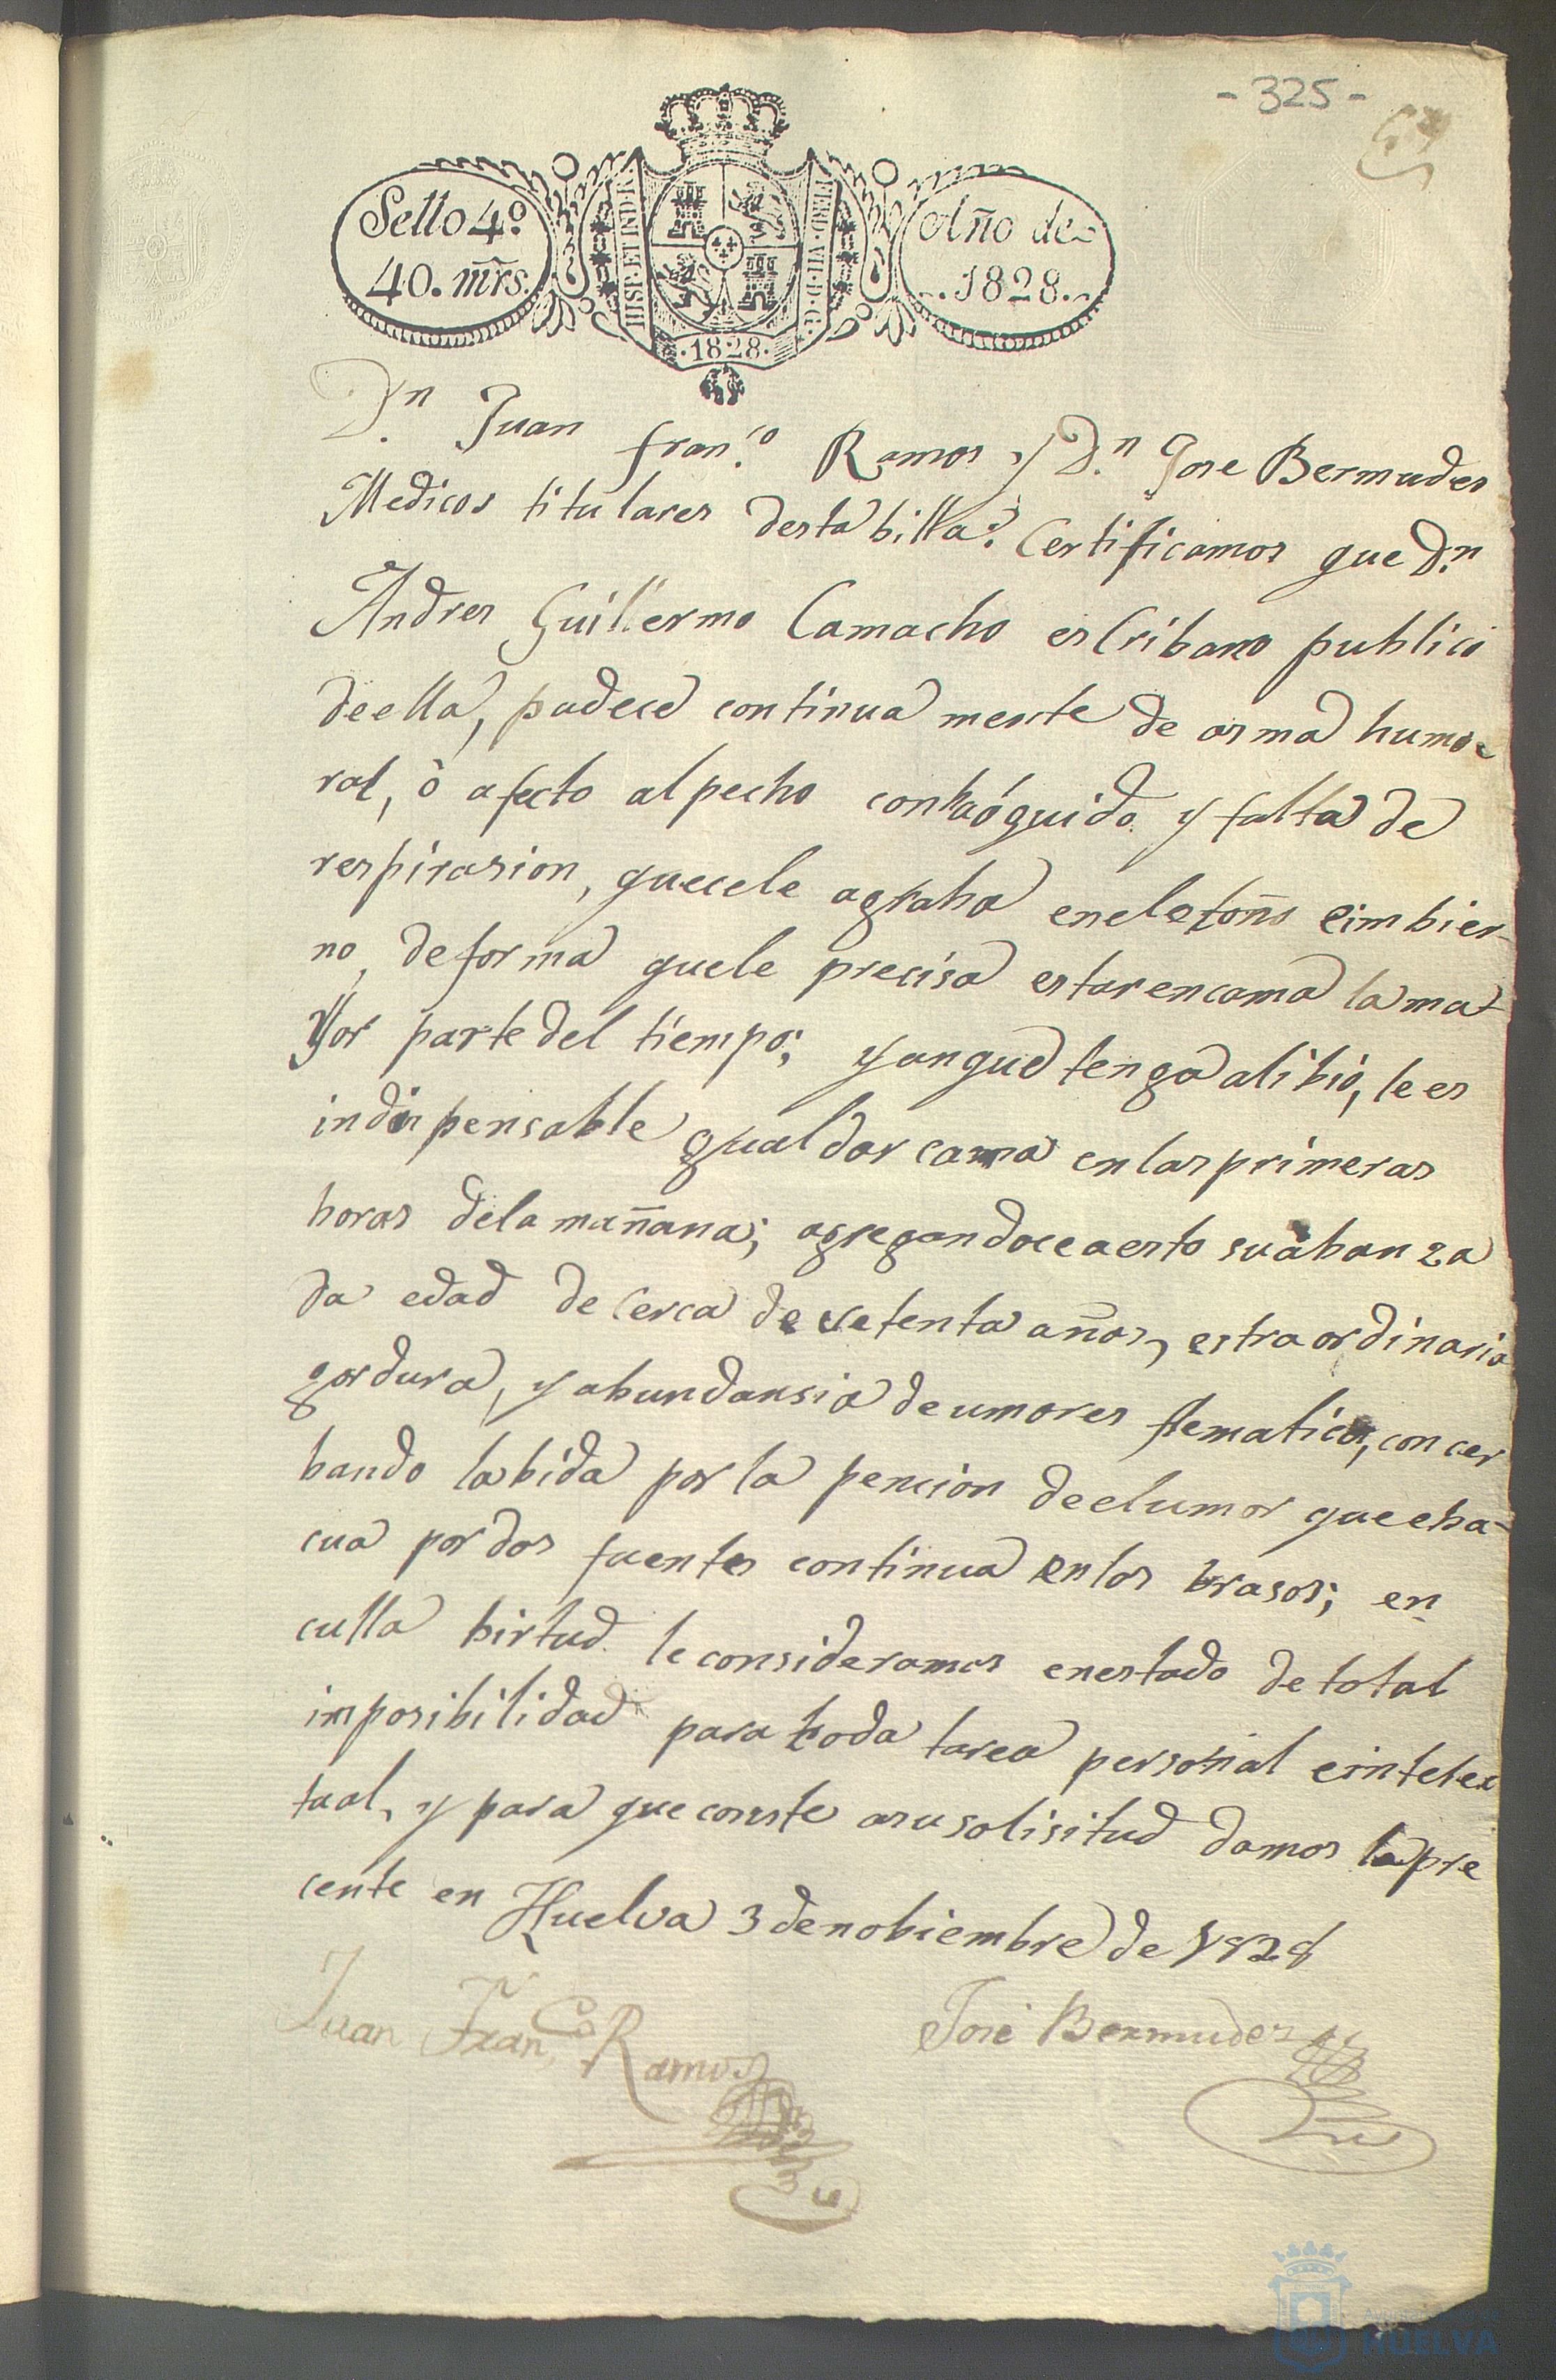 - 325 -
Sello 4.º
40. mrs.
HISP. ET IND. R.
FERD. VII. D. G.
.1828.
Año de
.1828.
D.n Juan Fran.co Ramos y D.n Jose Bermudes
Medicos titulares desta billa: Certificamos que D.n
Andres Guillermo Camacho esCribano publico
deella, padece continua mente de asma humo
ral, ò afecto al pecho con y falta de
respirasion, quecele agraba enel otoño eimbier-
no, deforma quele precisa estar encama la ma-
Yor parte del tiempo; y anque tenga alibio, le es
indispensable gualdar cama en las primeras
horas dela mañana; agregandoce aesto su abanza
da edad de cerca de cetenta años, estraordinaria
gordura, y abundansia de umores flematicos, concer
bando la bida por la pencion deel umor que eba-
cua por dos fuentes continua en los brasos; en
culla birtud le consideramos en estado de total
imposibilidad para toda tarea personal eintelec
tual, y para que conste asu solisitud damos la pre
cente en Huelva 3 de nobiembre de 1828
Juan Fran.co Ramos
José Bermudez
HUELVA